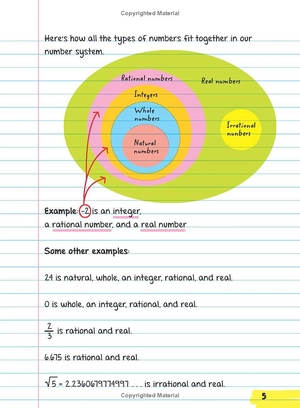 Copyrighted Material
Here's how all the types of numbers fit together in our
number system.
Rational numbers
Real numbers
Integers
Whole
numbers
Irrational
numbers
Natural
numbers
Example: -2 is an integer,
a rational number, and a real number
Some other examples:
24 is natural, whole, an integer, rational, and real.
0 is whole, an integer, rational, and real.
2/3 is rational and real.
6.675 is rational and real.
√5 = 2.2360679774997 . . . is irrational and real.
Copyrighted Material
5